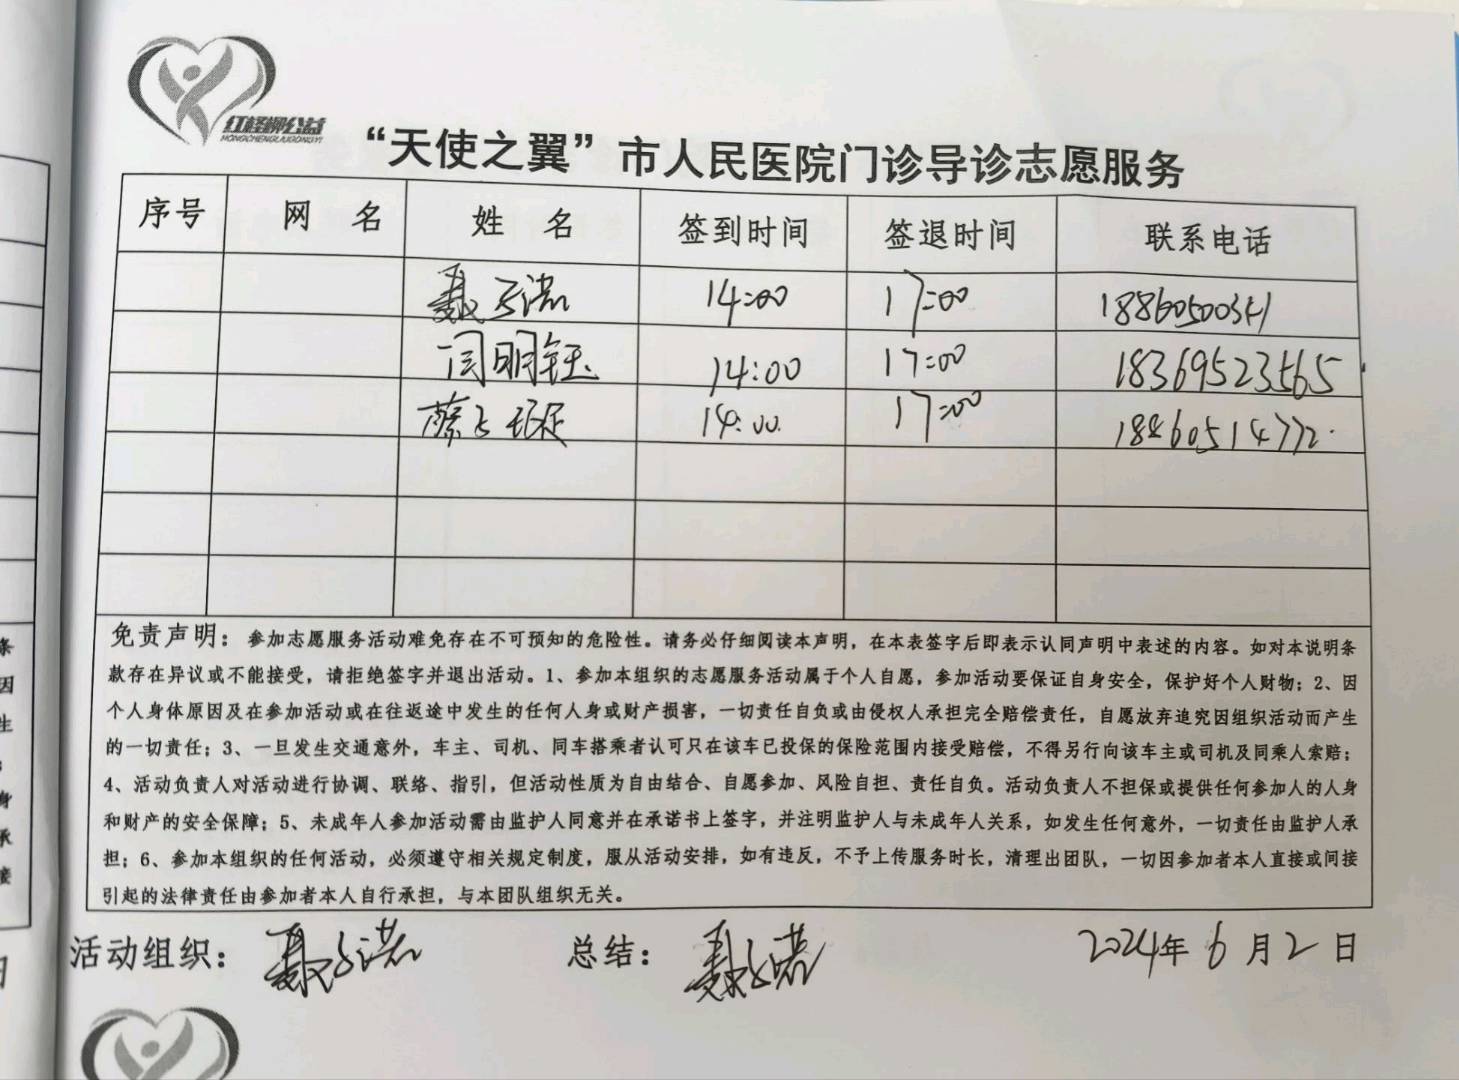 红柽柳公益
HONGCHENGLIUGONGYI
“天使之翼”市人民医院门诊导诊志愿服务
序号 网 名 姓 名 签到时间 签退时间 联系电话
聂子诺 14:00 17:00 18860500341
闫明钰 14:00 17:00 18369523565
蔡 14:00 17:00 18860514772
免责声明：参加志愿服务活动难免存在不可预知的危险性。请务必仔细阅读本声明，在本表签字后即表示认同声明中表述的内容。如对本说明条
款存在异议或不能接受，请拒绝签字并退出活动。1、参加本组织的志愿服务活动属于个人自愿，参加活动要保证自身安全，保护好个人财物；2、因
个人身体原因及在参加活动或在往返途中发生的任何人身或财产损害，一切责任自负或由侵权人承担完全赔偿责任，自愿放弃追究因组织活动而产生
的一切责任；3、一旦发生交通意外，车主、司机、同车搭乘者认可只在该车已投保的保险范围内接受赔偿，不得另行向该车主或司机及同乘人索赔；
4、活动负责人对活动进行协调、联络、指引，但活动性质为自由结合、自愿参加、风险自担、责任自负。活动负责人不担保或提供任何参加人的人身
和财产的安全保障；5、未成年人参加活动需由监护人同意并在承诺书上签字，并注明监护人与未成年人关系，如发生任何意外，一切责任由监护人承
担；6、参加本组织的任何活动，必须遵守相关规定制度，服从活动安排，如有违反，不予上传服务时长，清理出团队，一切因参加者本人直接或间接
引起的法律责任由参加者本人自行承担，与本团队组织无关。
活动组织：聂子诺 总结：聂子诺 2024年6月2日